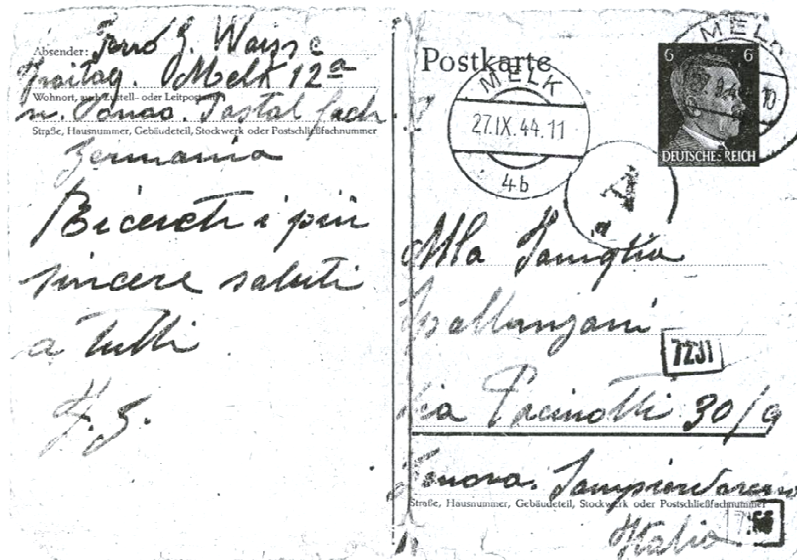 Absender: Ferró G. Waisse
Freitag. Melk 12a
Wohnort, auch Zustell- oder Leitpostamt
Donau. Postal fach
Straße, Hausnummer, Gebäudeteil, Stockwerk oder Postschließfachnummer
Germania
i più
sincere saluti
a tutti
Postkarte
MELK
27.IX.44.11
4b
MELK
6 6
DEUTSCHES REICH
Alla Famiglia
Spallanzani
7231
Via Pacinotti 30/9
Genova. Sampierdarena
Straße, Hausnummer, Gebäudeteil, Stockwerk oder Postschließfachnummer
Italia